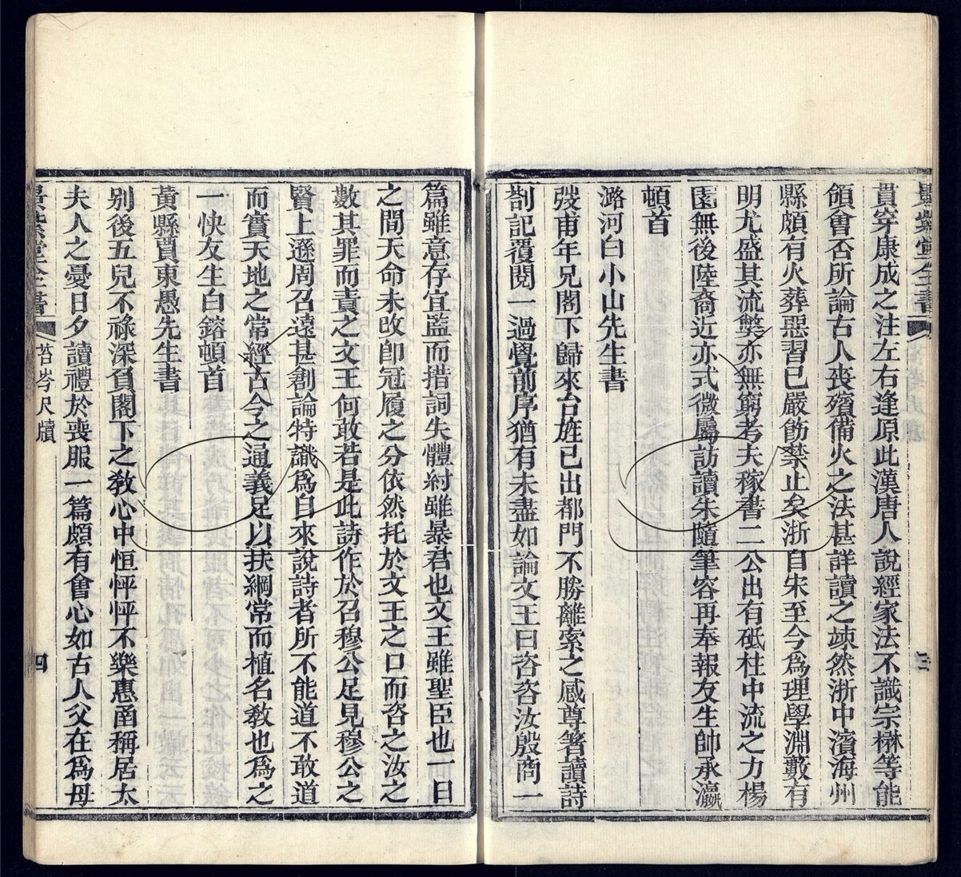 貫穿康成之注左右逢原此漢唐人說經家法不識宗楙等能
領會否所論古人喪殯備火之法甚詳讀之竦然浙中濱海州
縣頗有火葬惡習已嚴飭禁止矣浙自朱至今爲理學淵藪有
明尤盛其流獘亦無窮考夫稼書二公出有砥柱中流之力楊
園無後陸裔近亦式微屬訪讀朱隨筆容再奉報友生帥承瀛
頓首
潞河白小山先生書
弢甫年兄閣下歸來台旌已出都門不勝離索之感尊箸讀詩
劄記覆閱一過覺前序猶有未盡如論文王曰咨咨汝殷商一
景紫堂全書
三
篇雖意存宜監而措詞失體紂雖暴君也文王雖聖臣也一日
之間天命未改卽冠履之分依然托於文王之口而咨之汝之
數其罪而責之文王何敢若是此詩作於召穆公足見穆公之
賢上遜周召遠甚創論特識爲自來說詩者所不能道不敢道
而實天地之常經古今之通義足以扶綱常而植名敎也爲之
一快友生白鎔頓首
黃縣賈東愚先生書
別後五兒不祿深負閣下之敎心中恒怦怦不樂惠函稱居太
夫人之憂日夕讀禮於喪服一篇頗有會心如古人父在爲母
景紫堂全書
苔岑尺牘
四